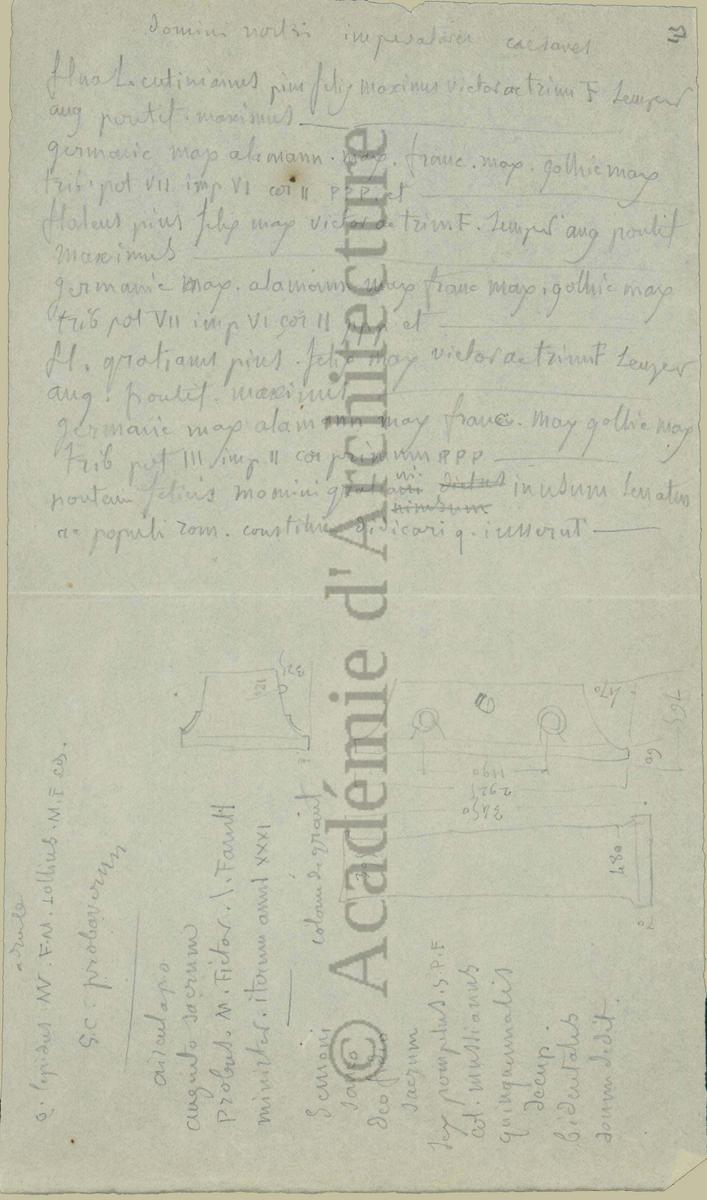 Domini nostri imperatores caesares
pius felix maximus victor ac trium F semper
aug pontif. maximus
germanic max alamann. max. franc. max. gothic max
trib. pot VII imp VI cos II PPP et
pius felix max victor ac trium F. semper aug pontif
maximus
germanic max. alamann max franc max. gothic max
trib pot VII imp VI cos II ppp et
fl. gratianus pius. felix max victor ac trium F semper
aug. pontif. maximus
germanic max alamann max franc. max gothic max
trib pot III imp II cos primum PPP
pontem felicis nomini gratiani in usum senatus
ac populi rom. constitui dedicari q. iusserunt
325
121
470
765
60
1190
2925
3450
480
colonne de granit
Q. lepidus. M. F. M. Lollius. M. F. cos.
S.C. probaverun
aisculapio
augusto sacrum
Probus. M. Fictor.
minister. iterum anni XXXI
Semoni
Sanco
deo fidio
sacrum
Sex pompeius. S. P. F
col. mussianus
quinquennalis
decup.
bidentalis
donum dedit.
© Académie d'Architecture